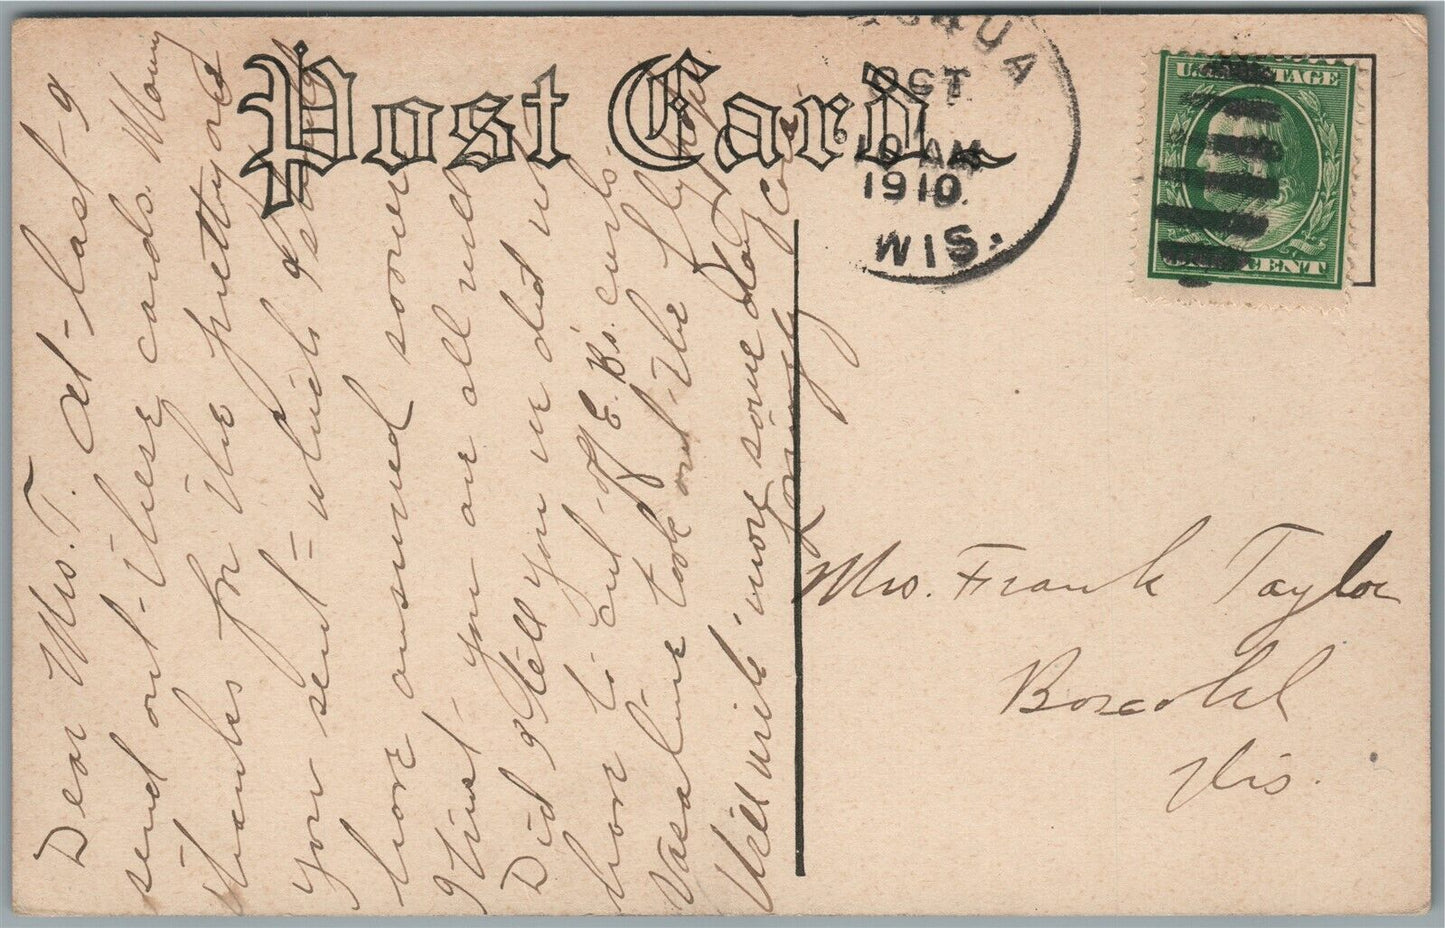 Post Card
OCT
10 AM
1910
WIS.
U.S. POSTAGE
ONE CENT
Dear Mrs. T. At-last-I
send out-these cards. Many
thanks for the pretty one
you sent-which I should
have answered sooner
I trust-you are all well
Did I tell you we did not
have to cut-off E. B's. curls.
Vasaline took out the fly
Will write more some day
Lovingly
Mrs. Frank Taylor
Boscobel
Wis.